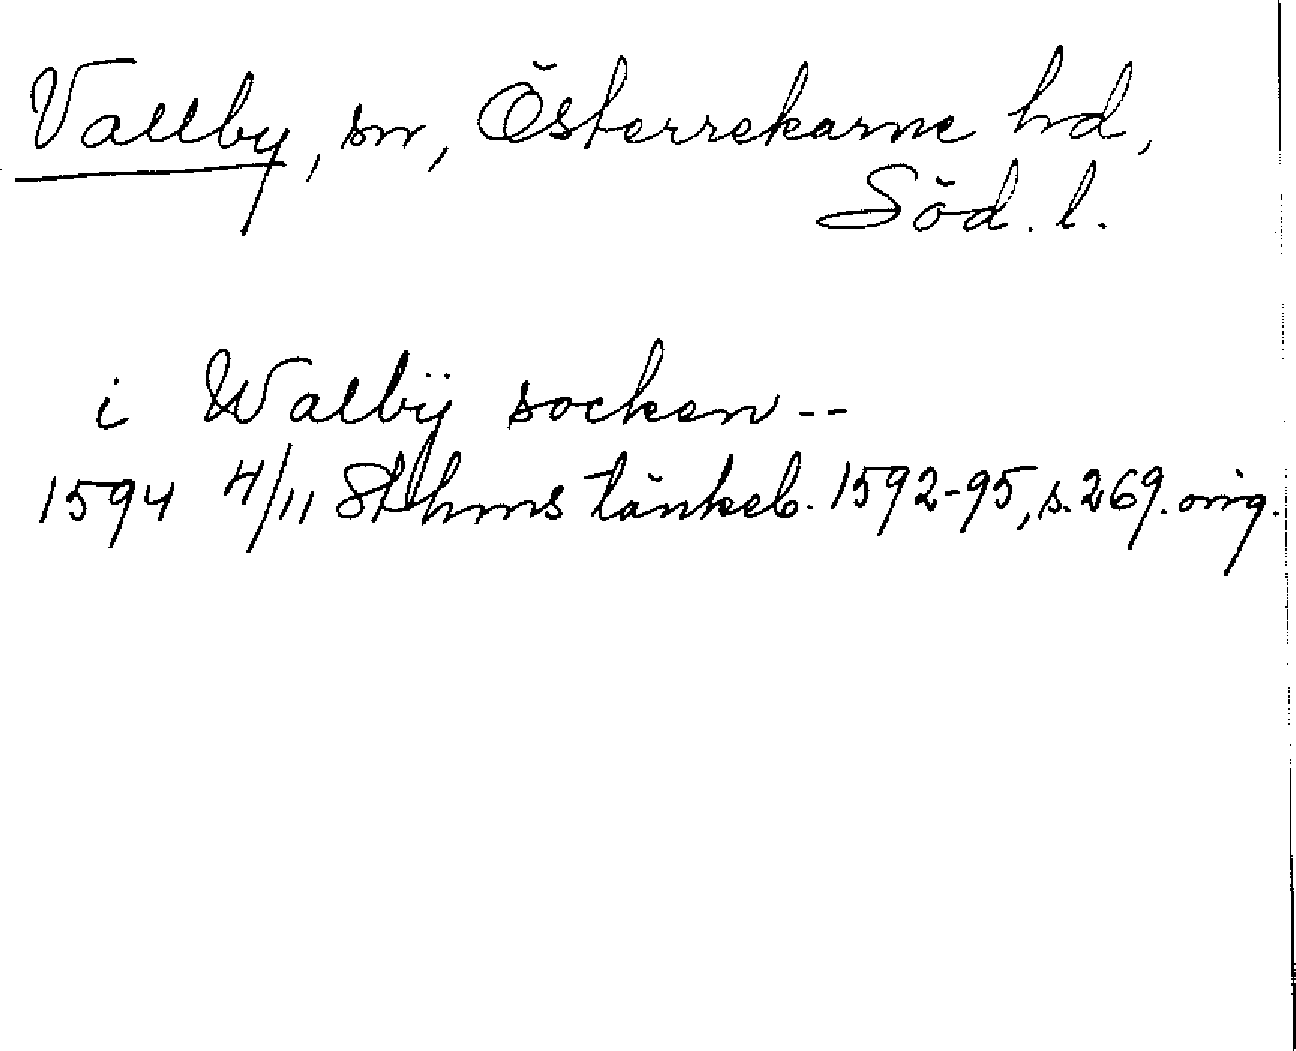 Vallby, sn, Österrekarne hd,
Söd. l.
i Walbÿ socken --
1594 4/11 Sthms tänkeb. 1592-95, s. 269. orig.